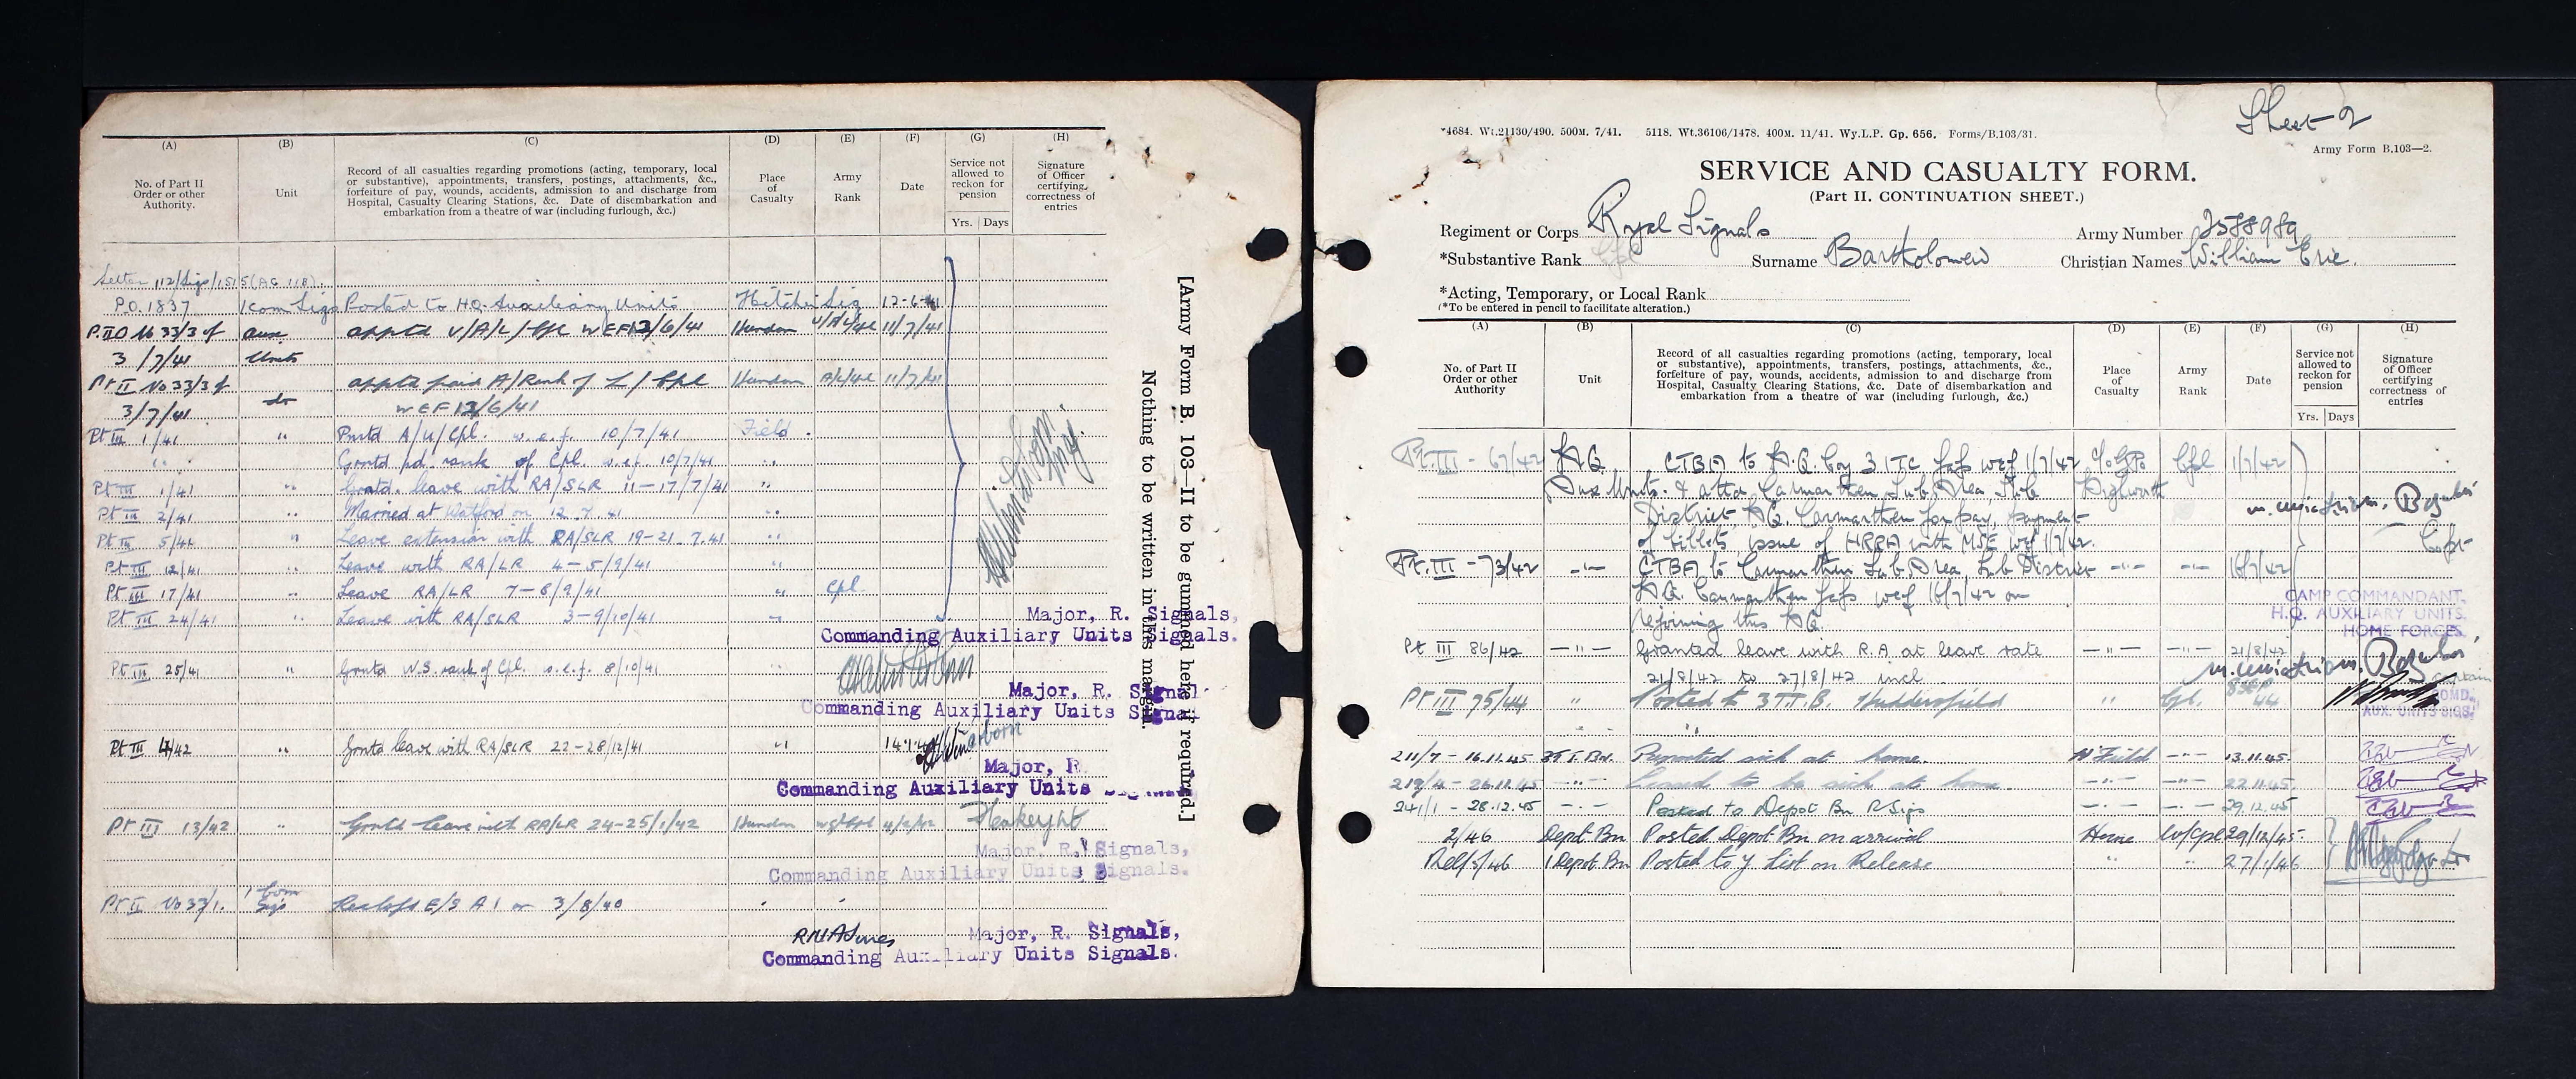 (A) (B) (C) (D) (E) (F) (G) (H)
No. of Part II Order or other Authority. Unit Record of all casualties regarding promotions (acting, temporary, local or substantive), appointments, transfers, postings, attachments, &c., forfeiture of pay, wounds, accidents, admission to and discharge from Hospital, Casualty Clearing Stations, &c. Date of disembarkation and embarkation from a theatre of war (including furlough, &c.) Place of Casualty Army Rank Date Service not allowed to reckon for pension Yrs. Days Signature of Officer certifying correctness of entries
Letter 112/Sigs/1515 (AG 118).
P.O. 1837 Kom Sigs Posted to HQ. Auxiliary Units Hitchin Sig 12-6-41
P.II O No 33/3 of Aux apptd U/A/L/Cpl WEF 13/6/41 Hundon 11/7/41
3/7/41 Units
Pt II No 33/3 of apptd paid A/Rank of L/Cpl Hundon A/L/Cpl 11/7/41
3/7/41 do WEF 13/6/41
Pt III 1/41 " Pmtd A/U/Cpl. w.e.f. 10/7/41 Field.
" Grntd pd. rank of Cpl. w.e.f. 10/7/41 "
Pt III 1/41 " Grntd. leave with RA/SLR 11-17/7/41 "
Pt III 2/41 " Married at Watford on 12.7.41 "
Pt III 5/41 " Leave extension with RA/SLR 19-21.7.41 "
Pt III 12/41 " Leave with RA/LR 4-5/9/41 "
Pt III 17/41 " Leave RA/LR 7-8/9/41 " Cpl.
Pt III 24/41 " Leave with RA/SLR 3-9/10/41 "
Major, R. Signals,
Commanding Auxiliary Units Signals.
Pt III 25/41 " Grntd W.S. rank of Cpl. w.e.f. 8/10/41 "
Major, R. Signal
Commanding Auxiliary Units Signal
Pt III 4/42 " Grntd leave with RA/SLR 22-28/12/41 "
Major, R
Commanding Auxiliary Units
Pt III 13/42 " Grntd leave with RA/LR 24-25/1/42 Hundon 4/2/42
Major, R. Signals,
Commanding Auxiliary Units Signals.
Pt II No 33/1. 1 Com Sigs E/S A1 on 3/8/40
RNA Jones Major, R. Signals,
Commanding Auxiliary Units Signals.
[Army Form B. 103—II to be gummed here if required.]
Nothing to be written in this margin.
Sheet 2
*4684. Wt.21130/490. 500M. 7/41. 5118. Wt.36106/1478. 400M. 11/41. Wy.L.P. Gp. 656. Forms/B.103/31.
Army Form B.103—2.
SERVICE AND CASUALTY FORM.
(Part II. CONTINUATION SHEET.)
Regiment or Corps Royal Signals Army Number 2588989
*Substantive Rank Cpl Surname Bartholomew Christian Names William Eric.
*Acting, Temporary, or Local Rank
(*To be entered in pencil to facilitate alteration.)
(A) (B) (C) (D) (E) (F) (G) (H)
No. of Part II Order or other Authority Unit Record of all casualties regarding promotions (acting, temporary, local or substantive), appointments, transfers, postings, attachments, &c., forfeiture of pay, wounds, accidents, admission to and discharge from Hospital, Casualty Clearing Stations, &c. Date of disembarkation and embarkation from a theatre of war (including furlough, &c.) Place of Casualty Army Rank Date Service not allowed to reckon for pension Yrs. Days Signature of Officer certifying correctness of entries
Pt. III - 67/42 H.Q. CTBA to H.Q. Coy 3 ITC wef 1/7/42 c/o GPO Cpl 1/7/42
Aux Units. & attd Carmarthen Sub Area, Sub Highworth
District, HQ. Carmarthen for pay, payment
of billets, issue of HRRA with MSE wef 1/7/42.
Pt. III - 73/42 -"- CTBA to Carmarthen Sub Area, Sub District -"- -"- 16/7/42
HQ. Carmarthen wef 16/7/42 on
rejoining this HQ.
CAMP COMMANDANT.
H.Q. AUXILIARY UNITS.
HOME FORCES.
Pt III 86/42 -"- Granted leave with R.A. at leave rate -"- -"- 21/8/42
21/8/42 to 27/8/42 incl
Pt III 75/44 " Posted to 3 T.T.B. Huddersfield " Cpl. 8 SEP 44
AUX. UNITS SIGS.
211/7 - 16.11.45 Reported sick at home. H'Field -"- 13.11.45
219/4 - 26.11.45 -"- Ceased to be sick at home. -"- -"- 22.11.45
241/1 - 28.12.45 -"- Posted to Depot Bn R Sigs -"- -"- 29.12.45
2/46 Depot Bn Posted Depot Bn on arrival Home W/Cpl 29/12/45
Rel/5/46 1 Depot Bn Posted to Y List on Release " " 27/1/46